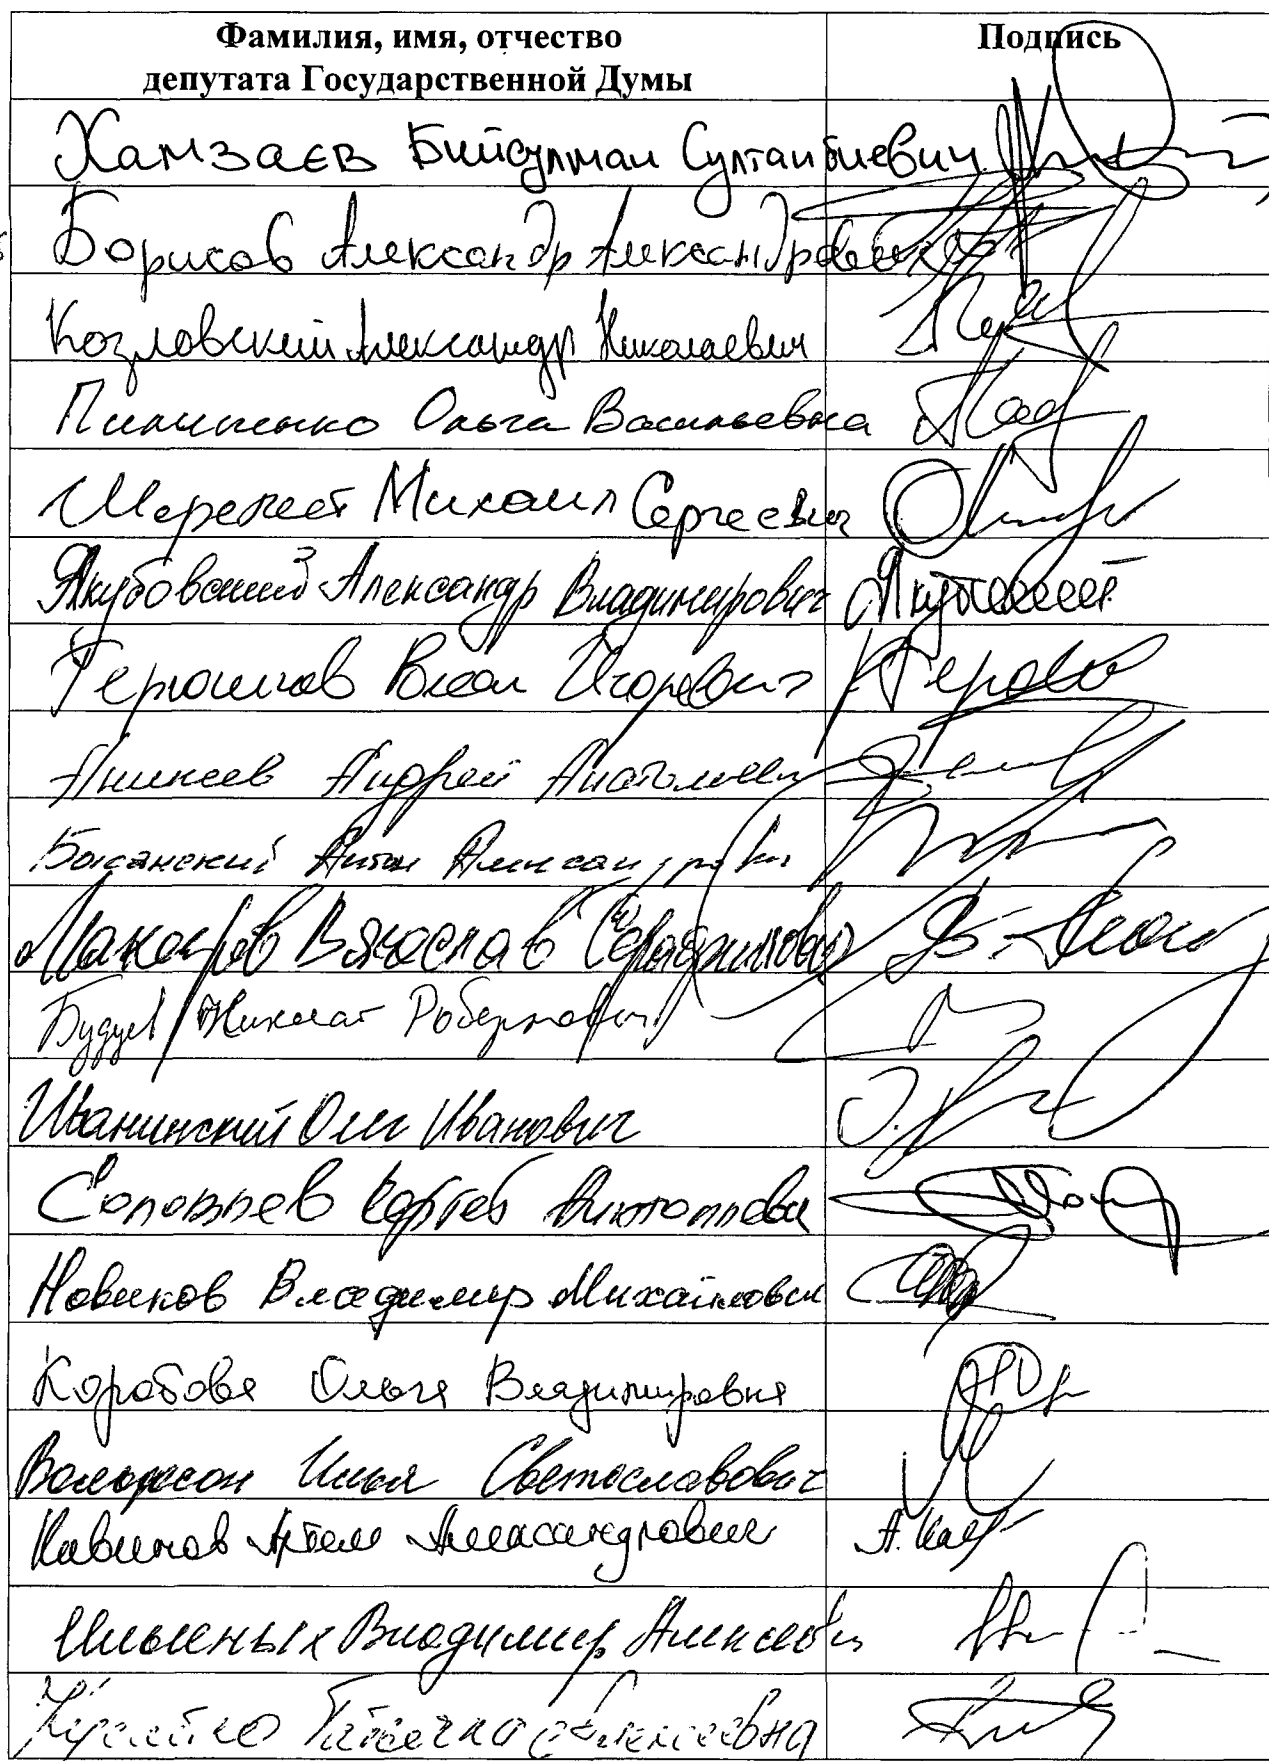 Фамилия, имя, отчество Подпись
депутата Государственной Думы
Хамзаев Бийсултан Султанбиевич
Борисов Александр Александрович
Козловский Александр Николаевич
Пилипенко Ольга Васильевна
Шеремет Михаил Сергеевич
Якубовский Александр Владимирович Якубовский
Терюшков Роман Игоревич
Аникеев Андрей Анатольевич
Басанский Антон Александрович
Макаров Вячеслав Серафимович
Будуев Николай Робертович
Иванинский Олег Иванович
Соловьев Сергей Анатольевич
Новиков Владимир Михайлович
Коробова Ольга Владимировна
Вольфсон Илья Светославович
Кавинов Артем Александрович А. Кав
Ильиных Владимир Алексеевич
Татьяна Алексеевна